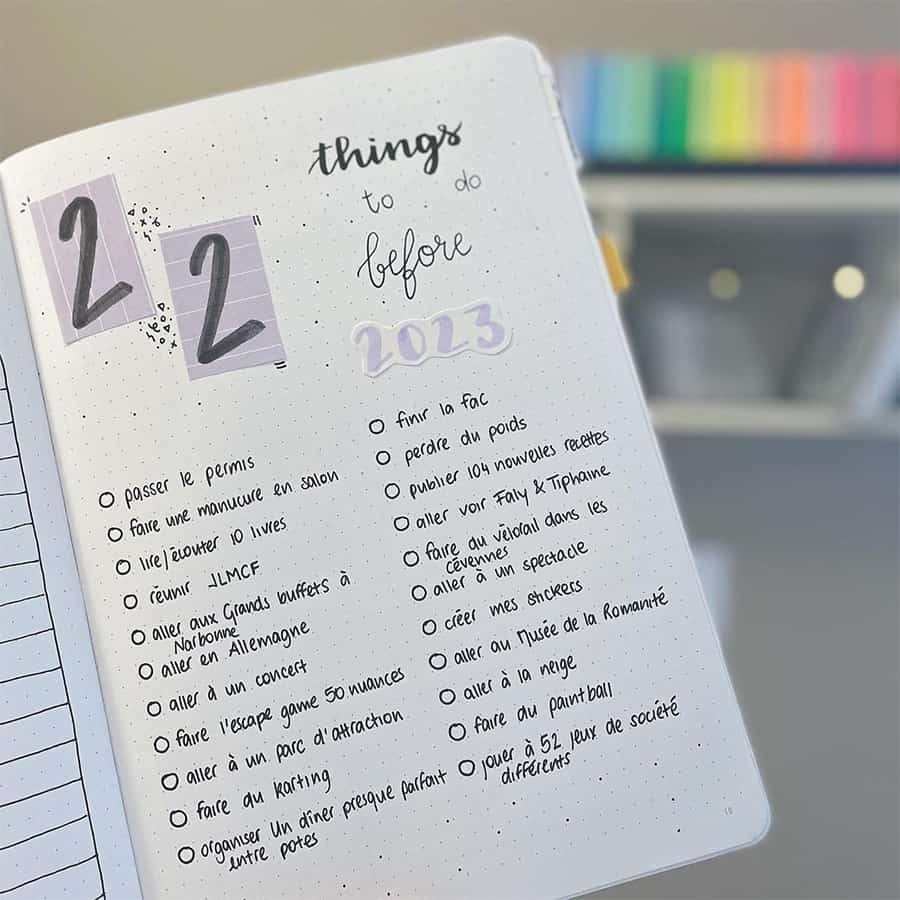 22
things
to do
before
2023
passer le permis
faire une manucure en salon
lire/écouter 10 livres
réunir JLMCF
aller aux Grands buffets à
Narbonne
aller en Allemagne
aller à un concert
faire l'escape game 50 nuances
aller à un parc d'attraction
faire du karting
organiser Un dîner presque parfait
entre potes
finir la fac
perdre du poids
publier 104 nouvelles recettes
aller voir Faly & Tiphaine
faire du vélorail dans les
cévennes
aller à un spectacle
créer mes stickers
aller au Musée de la Romanité
aller à la neige
faire du paintball
jouer à 52 jeux de société
différents